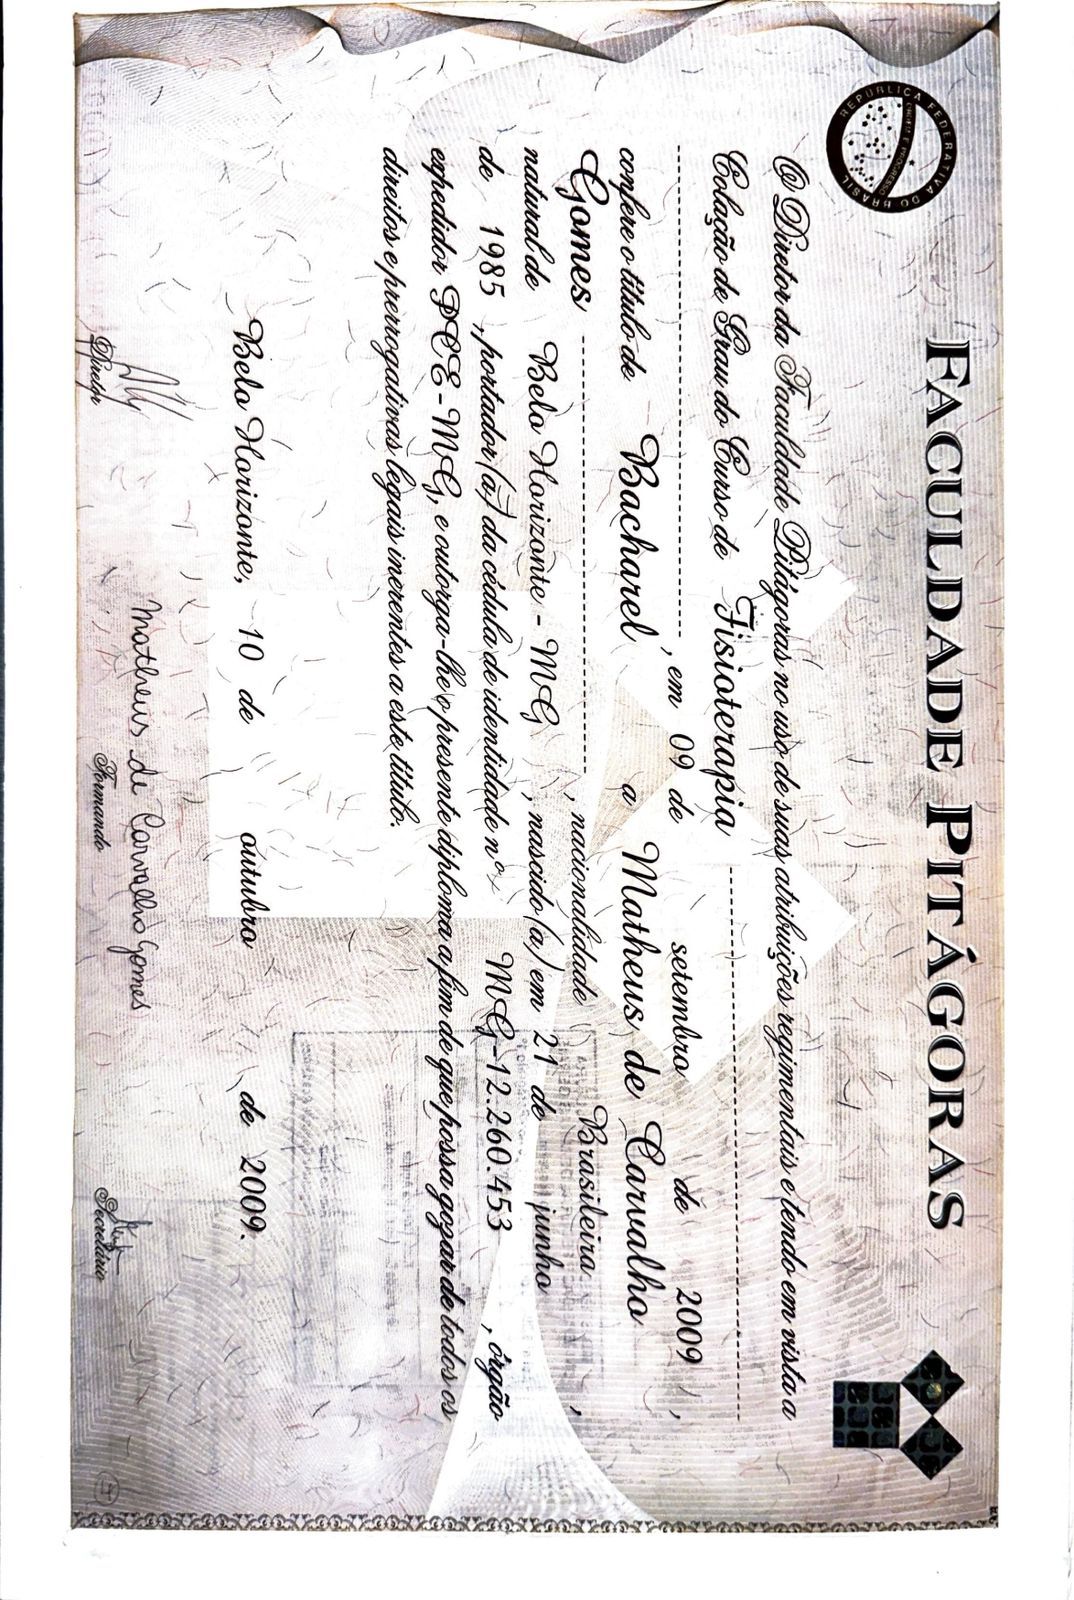 FACULDADE PITÁGORAS
REPÚBLICA FEDERATIVA DO BRASIL
ORDEM E PROGRESSO
O Diretor da Faculdade Pitágoras no uso de suas atribuições regimentais e tendo em vista a
Colação de Grau do Curso de Fisioterapia
, em 09 de setembro de 2009 ,
confere o título de Bacharel a Matheus de Carvalho
Gomes , nacionalidade Brasileira ,
natural de Belo Horizonte - MG , nascido (a) em 21 de junho
de 1985 , portador (a) da cédula de identidade nº MG-12.260.453 , órgão
expedidor PCE-MG, e outorga-lhe o presente diploma a fim de que possa gozar de todos os
direitos e prerrogativas legais inerentes a este título.
Belo Horizonte, 10 de outubro de 2009.
Matheus de Carvalho Gomes
Diretor Formando Secretário